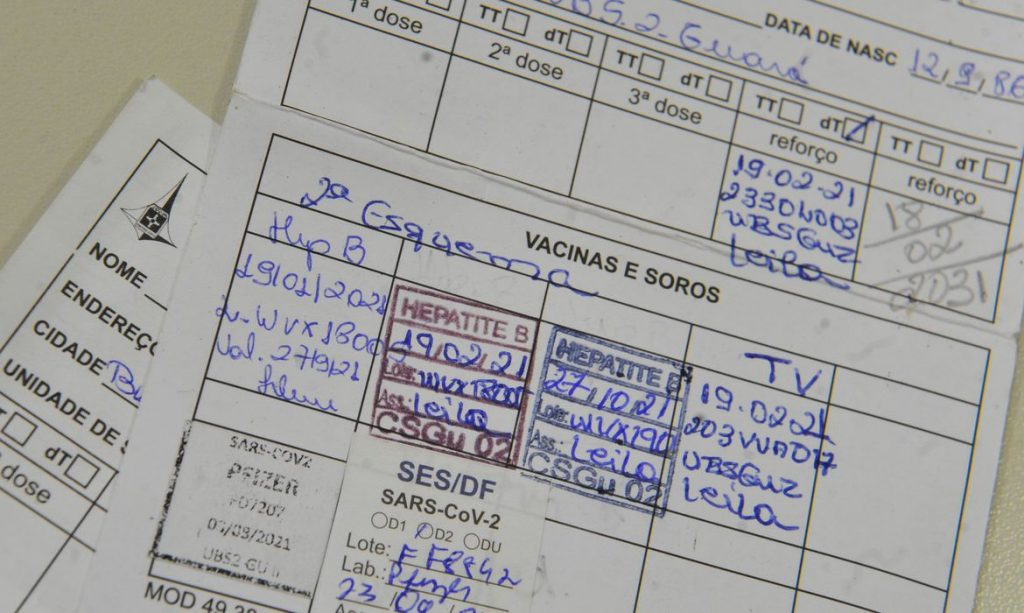 UBS.2-Guará
DATA DE NASC 12,9,86
TT dT
1ª dose
TT dT
2ª dose
TT dT
3ª dose
TT dT
reforço
19-02-21
UBSGuz
Leila
TT dT
reforço
18
02
2031
2ª Esquema
VACINAS E SOROS
Hep B
19/01/2021
Val. 27/9/21
HEPATITE B
19/02/21
Lote:
Ass: Leila
CSGu 02
HEPATITE B
27/10/21
Lote: WVX190
Ass.: Leila
CSGu 02
TV
19.02.21
UBSGuz
Leila
SARS-COV2
PFIZER
UBS2 GU II
SES/DF
SARS-CoV-2
D1 D2 DU
Lote:
Lab.: Pfizer
MOD 49
NOME
ENDEREÇO
CIDADE
UNIDADE DE
dT
dose